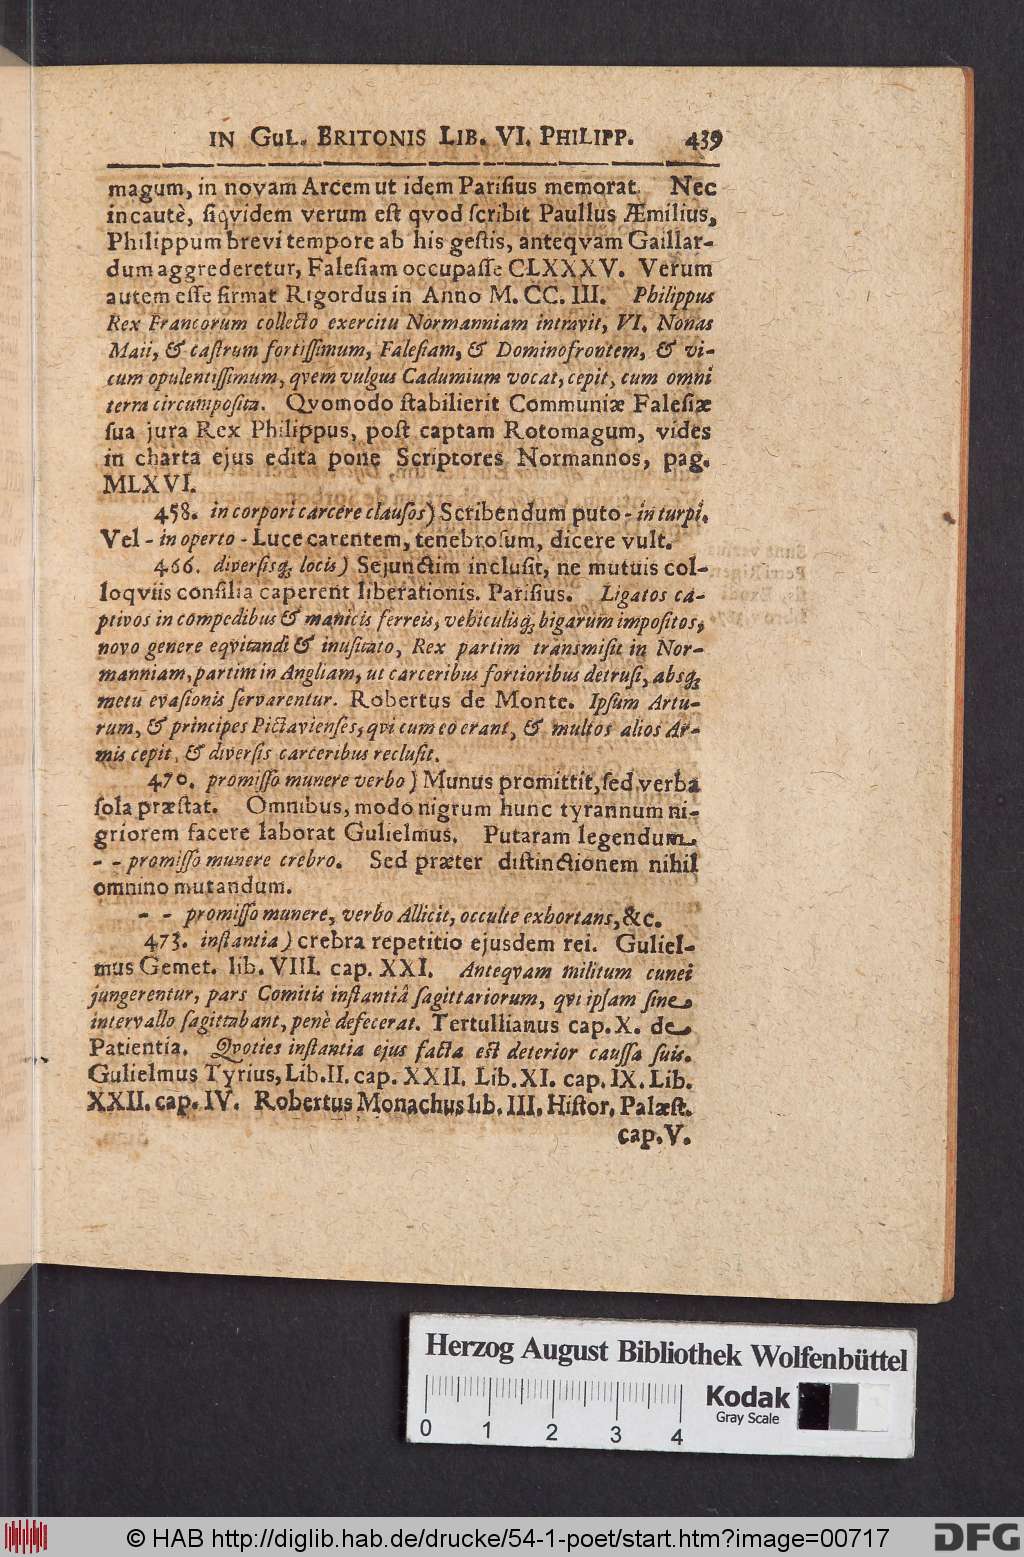 IN GUL. BRITONIS LIB. VI. PHILIPP. 439
magum, in novam Arcem ut idem Pariſius memorat. Nec
incautè, ſiqvidem verum eſt qvod ſcribit Paullus Æmilius,
Philippum brevi tempore ab his geſtis, anteqvam Gaillar-
dum aggrederetur, Faleſiam occupaſſe CLXXXV. Verum
autem eſſe firmat Rigordus in Anno M. CC. III. Philippus
Rex Francorum collecto exercitu Normanniam intravit, VI. Nonas
Maii, & caſtrum fortiſſimum, Faleſiam, & Dominofrontem, & vi-
cum opulentiſſimum, qvem vulgus Cadumium vocat, cepit, cum omni
terra circumpoſita. Qvomodo ſtabilierit Communiæ Faleſiæ
ſua jura Rex Philippus, poſt captam Rotomagum, vides
in charta ejus edita pone Scriptores Normannos, pag.
MLXVI.
458. in corpori carcere clauſos) Scribendum puto - in turpi.
Vel - in operto - Luce carentem, tenebroſum, dicere vult.
466. diverſisq; locis) Sejunctim incluſit, ne mutuis col-
loqviis conſilia caperent liberationis. Pariſius. Ligatos ca-
ptivos in compedibus & manicis ferreis, vehiculisq; bigarum impoſitos,
novo genere eqvitandi & inuſitato, Rex partim transmiſit in Nor-
manniam, partim in Angliam, ut carceribus fortioribus detruſi, absq;
metu evaſionis ſervarentur. Robertus de Monte. Ipſum Artu-
rum, & principes Pictavienſes, qvi cum eo erant, & multos alios Ar-
mis cepit, & diverſis carceribus recluſit.
470. promiſſo munere verbo) Munus promittit, ſed verba
ſola præſtat. Omnibus, modo nigrum hunc tyrannum ni-
griorem facere laborat Gulielmus. Putaram legendum
- - promiſſo munere crebro. Sed præter diſtinctionem nihil
omnino mutandum.
- - promiſſo munere, verbo Allicit, occulte exhortans, &c.
473. inſtantia) crebra repetitio ejusdem rei. Guliel-
mus Gemet. lib. VIII. cap. XXI. Anteqvam militum cunei
jungerentur, pars Comitis inſtantiâ ſagittariorum, qvi ipſam ſine
intervallo ſagittabant, penè defecerat. Tertullianus cap. X. de
Patientia. Qvoties inſtantia ejus facta eſt deterior cauſſa ſuis.
Gulielmus Tyrius, Lib. II. cap. XXII. Lib. XI. cap. IX. Lib.
XXII. cap. IV. Robertus Monachus lib. III. Hiſtor. Palæſt.
cap. V.
Herzog August Bibliothek Wolfenbüttel
Kodak
Gray Scale
0 1 2 3 4
© HAB http://diglib.hab.de/drucke/54-1-poet/start.htm?image=00717
DFG